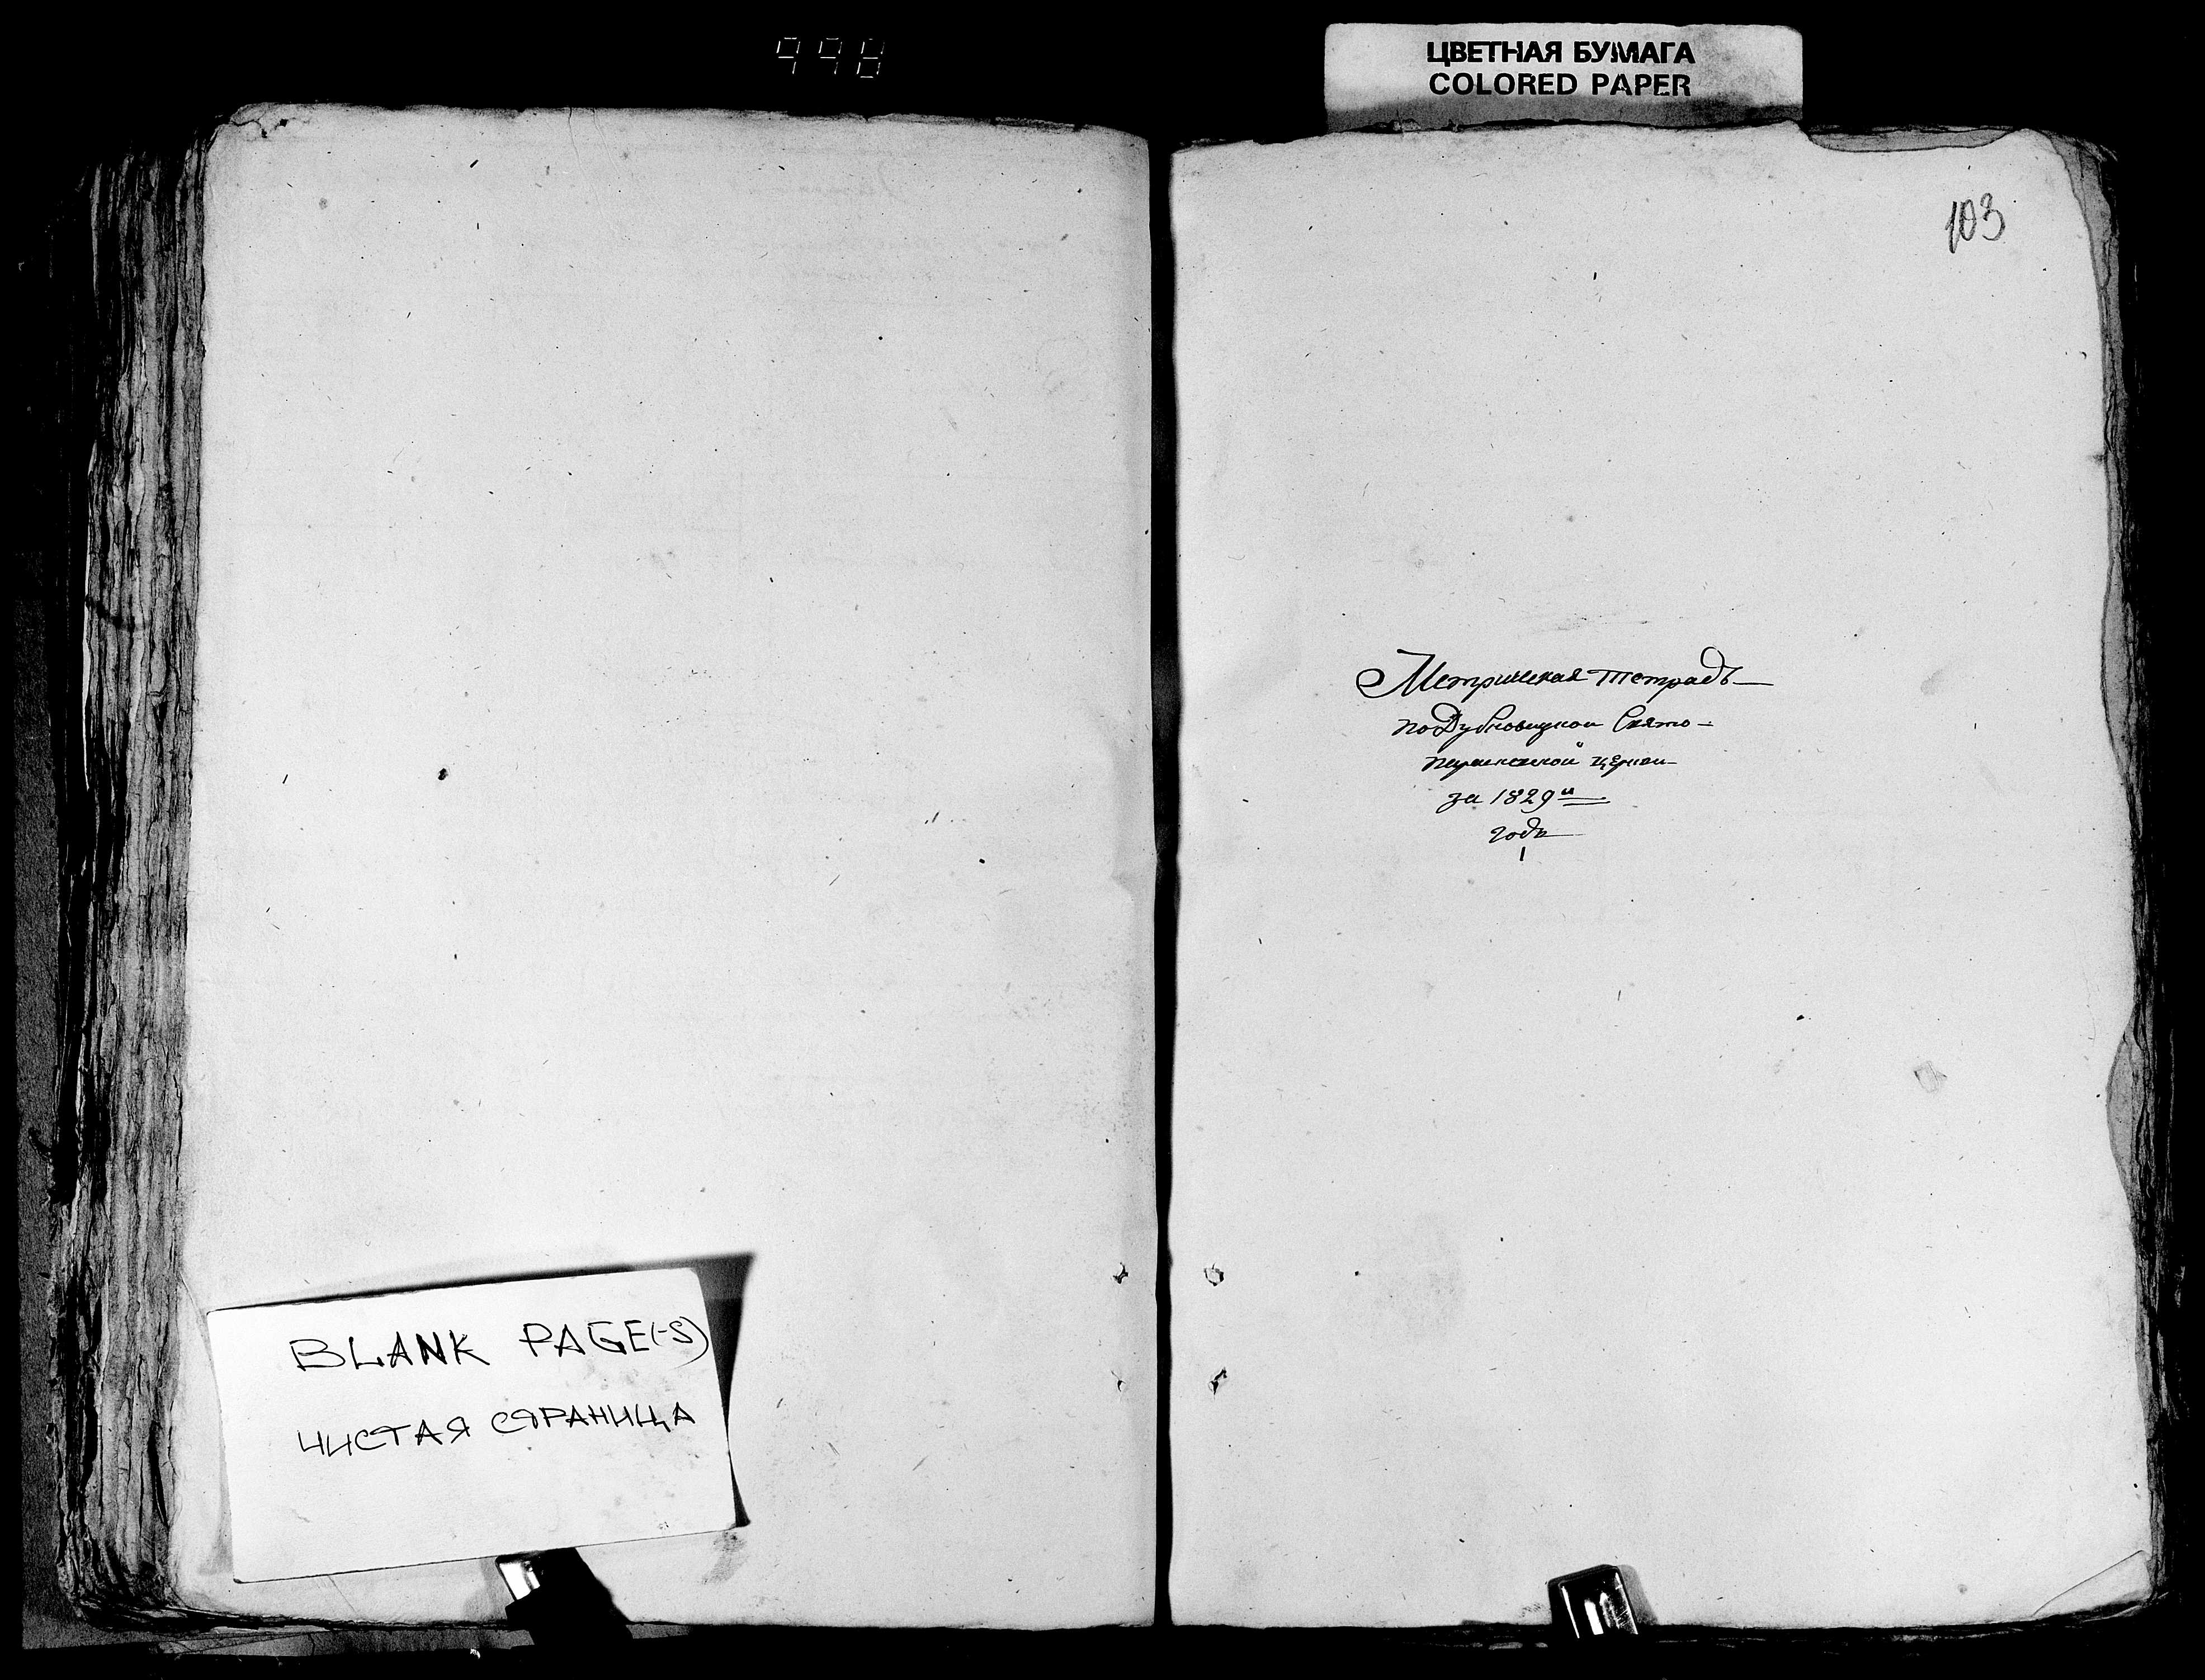 998
ЦВЕТНАЯ БУМАГА
COLORED PAPER
103
Метрическая тетрадь
по Дубновицкой Свято-
церкви
за 1829й
годъ
BLANK PAGE(-S)
ЧИСТАЯ СТРАНИЦА